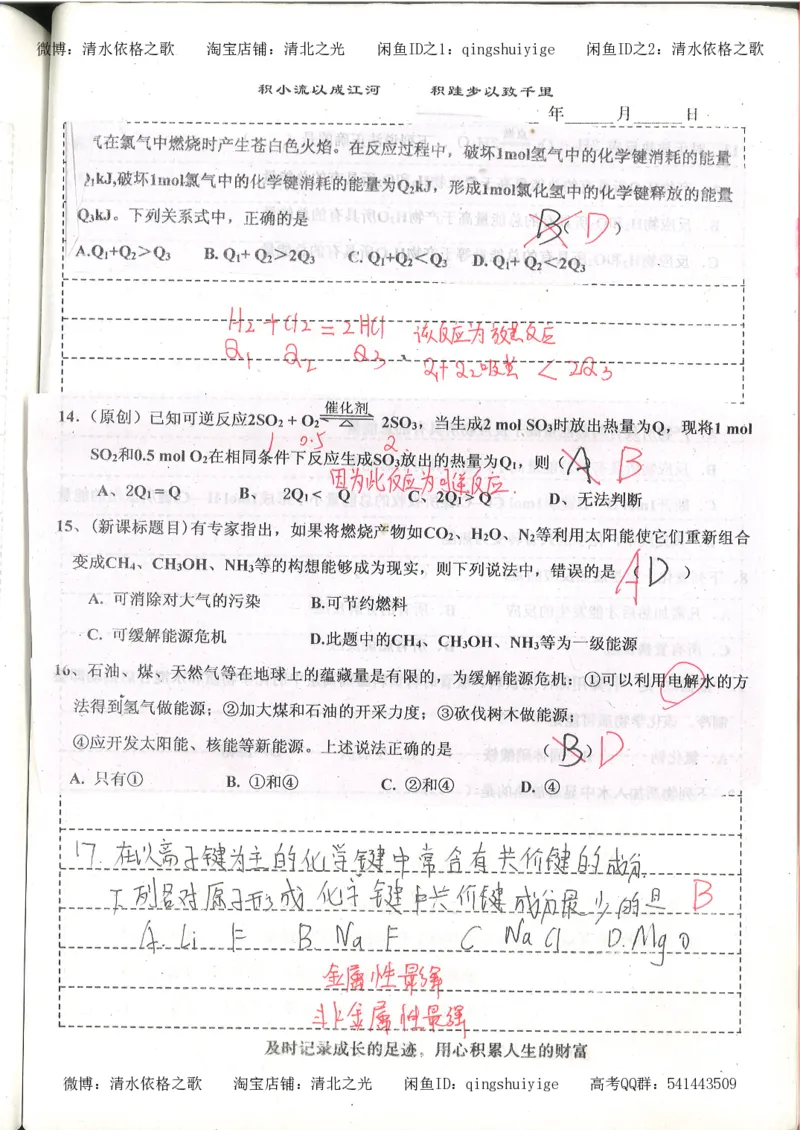 微博：清水依格之歌 淘宝店铺：清北之光 闲鱼ID之1：qingshuiyige 闲鱼ID之2：清水依格之歌
积小流以成江河 积跬步以致千里
年 月 日
气在氯气中燃烧时产生苍白色火焰。在反应过程中，破坏1mol氢气中的化学键消耗的能量
Q₁kJ,破坏1mol氯气中的化学键消耗的能量为Q₂kJ，形成1mol氯化氢中的化学键释放的能量
Q₃kJ。下列关系式中，正确的是 B（D）
A.Q₁+Q₂＞Q₃ B. Q₁+ Q₂＞2Q₃ C. Q₁+Q₂＜Q₃ D. Q₁+ Q₂＜2Q₃
H₂+Cl₂=2HCl 该反应为放热反应
Q₁ Q₂ Q₃ Q₁+Q₂吸热 < 2Q₃
14．（原创）已知可逆反应2SO₂ + O₂ 催化剂 2SO₃，当生成2 mol SO₃时放出热量为Q，现将1 mol
1 0.5 2
SO₂和0.5 mol O₂在相同条件下反应生成SO₃放出的热量为Q₁，则（A B
因为此反应为可逆反应.
A、2Q₁= Q B、 2Q₁＜ Q C、2Q₁＞Q D、无法判断
15、(新课标题目)有专家指出，如果将燃烧产物如CO₂、H₂O、N₂等利用太阳能使它们重新组合
变成CH₄、CH₃OH、NH₃等的构想能够成为现实，则下列说法中，错误的是 A（D ）
A. 可消除对大气的污染 B.可节约燃料
C. 可缓解能源危机 D.此题中的CH₄、CH₃OH、NH₃等为一级能源
16、石油、煤、天然气等在地球上的蕴藏量是有限的，为缓解能源危机：①可以利用电解水的方
法得到氢气做能源；②加大煤和石油的开采力度；③砍伐树木做能源；
④应开发太阳能、核能等新能源。上述说法正确的是 （B）D
A. 只有① B. ①和④ C. ②和④ D. ④
17.在以离子键为主的化学键中常含有共价键的成份.
下列各对原子形成化学键中共价键成份最少的是 B
A. Li F B Na F C Na Cl D. Mg O
金属性最强
非金属性最强
及时记录成长的足迹，用心积累人生的财富
微博：清水依格之歌 淘宝店铺：清北之光 闲鱼ID：qingshuiyige 高考QQ群：541443509